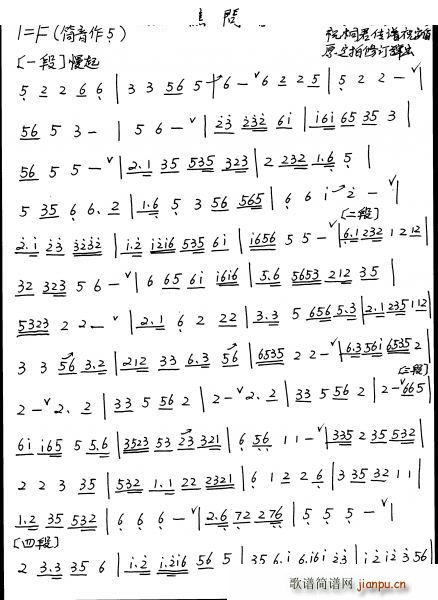 1=F(筒音作5)
[一段]慢起
5 2 2 6 6 | 3 3 56 5 | 6 - ∨6 2 2 5 | 5 2 2 - ∨ |
56 5 3 - | 5 6 - ∨ | 2̇3̇ 2̇3̇2̇ 6i̇ | i̇6i̇ 65 35 3 |
56 5 5 - ∨ | 2.1 35 535 323 | 2 232 1.6 5 |
5 35 6 6. 2 | 1.6 5 3 56 565 | 6 6 i̇ 2̇ - ∨ |
[二段]
2̇.i̇ 2̇3̇ 3̇2̇3̇2̇ | i̇.2̇ i̇2̇i̇6 535 6i̇ | i̇656 5 5 - ∨ | 6.1 232 1 2 12 |
32 323 5 6 - ∨ | 6 65 6i̇ i̇6i̇6 | 5.6 5653 212 35 |
5323 2 2 - ∨ | 2.1 6 2 22 | 3.3 5 656 5.3 | 2.1 235 1 12 |
3 3 56 3.2 | 212 33 6.3 56 | 6535 2 2 - ∨ | 6.3 56i̇ 6535 2 |
[三段]
2 - ∨ 2. 2 | 33 5 56 2 | 2 - ∨ 2. 2 | 33 5 56 2 | 2 - ∨ 665 |
6i̇ i̇65 5 5.6 | 3523 53 23 321 | 6 56 1 1 - ∨ | 335 2 35 532 |
2 2 3 35 | 532 1.1 22 2321 | 6 1 2 2 6 | 3 35 32 1 1 |
1.2 35 532 | 6 6 6 - ∨ | 2.6 72 276 | 5 5 5 - ∨ |
[四段]
2 3.3 35 6 | i̇.2̇ i̇.2̇i̇6 56 5 | 35 6. i̇ 6.i̇6i̇ 2̇3̇ | i̇ 2̇ i̇2̇ 3̇ 56
歌谱简谱网
jianpu.cn